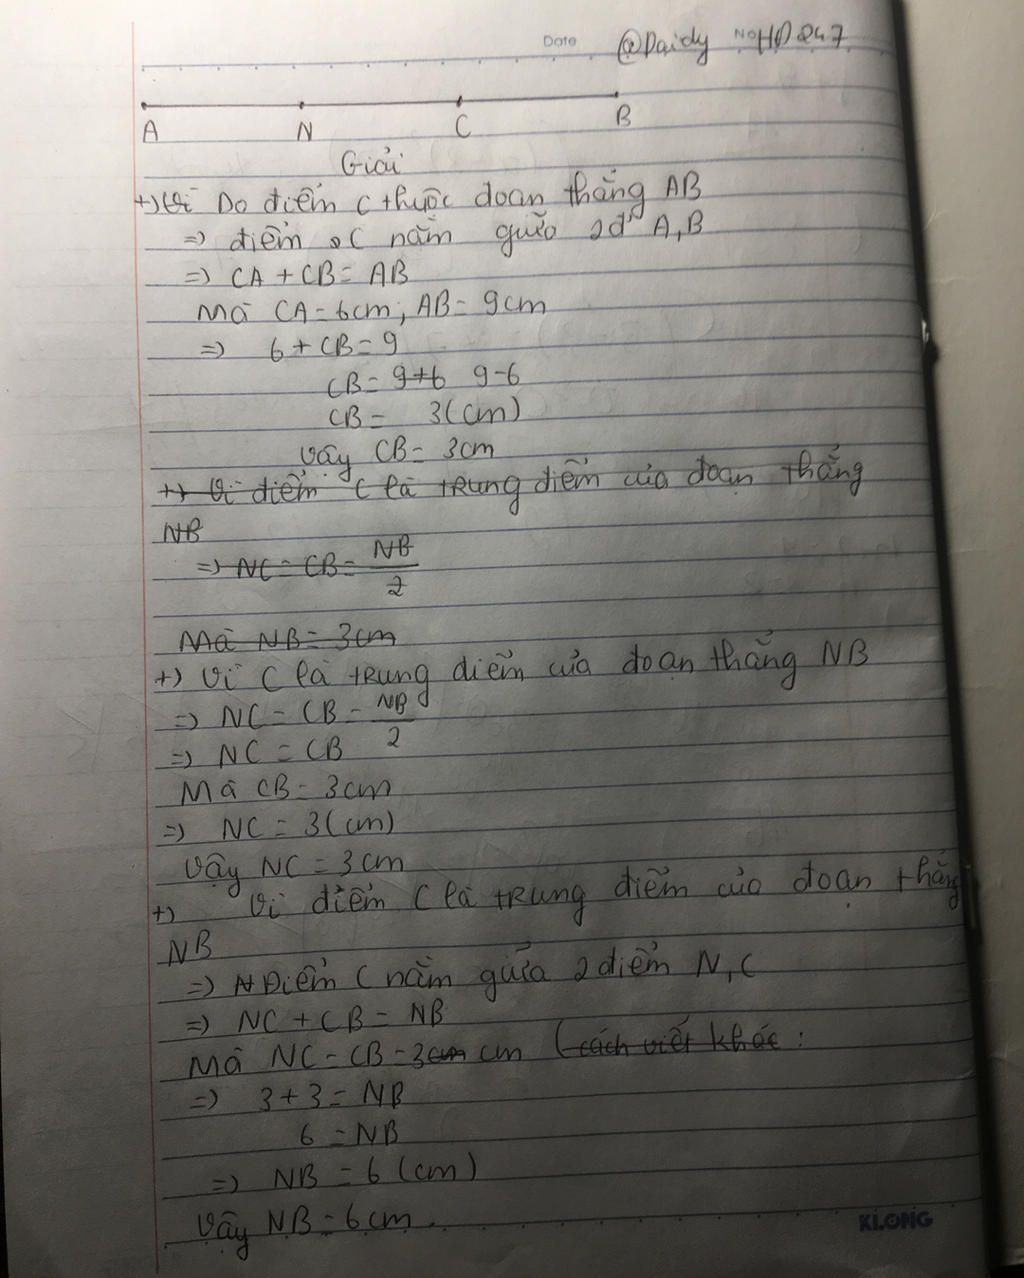 Date @Daidy No HD247
A N C B
Giải
+) Vì Do điểm C thuộc đoạn thẳng AB
=) điểm C nằm giữa 2đ' A,B
=) CA + CB = AB
Mà CA = 6cm; AB = 9cm
=) 6 + CB = 9
CB = 9+6 9-6
CB = 3(cm)
Vậy CB = 3cm
+) Vì điểm C là trung điểm của đoạn thẳng
NB
=) NC = CB = NB/2
Mà NB = 3cm
+) Vì C là trung điểm của đoạn thẳng NB
=) NC = CB = NB/2
=) NC = CB
Mà CB = 3cm
=) NC = 3(cm)
Vậy NC = 3cm
+) Vì điểm C là trung điểm của đoạn thẳng
NB
=) N Điểm C nằm giữa 2 điểm N,C
=) NC + CB = NB
Mà NC = CB = 3cm cm (cách viết khác :
=) 3 + 3 = NB
6 = NB
=) NB = 6 (cm)
Vậy NB = 6cm.
KLONG